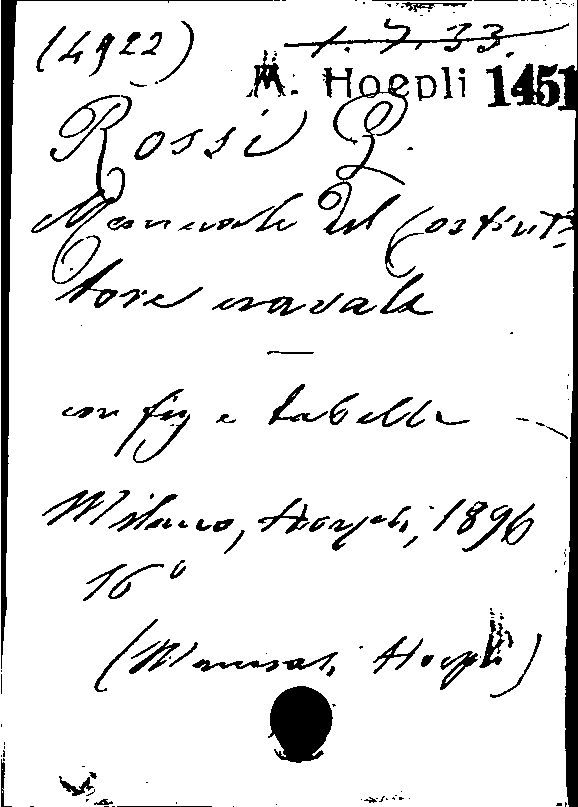 (4922) 1.7.33.
M. Hoepli 1451
Rossi G.
Manuale del Costrut-
tore navale
—
con fig e tabelle
Milano, Hoepli, 1896
16°
(Manuali Hoepli)